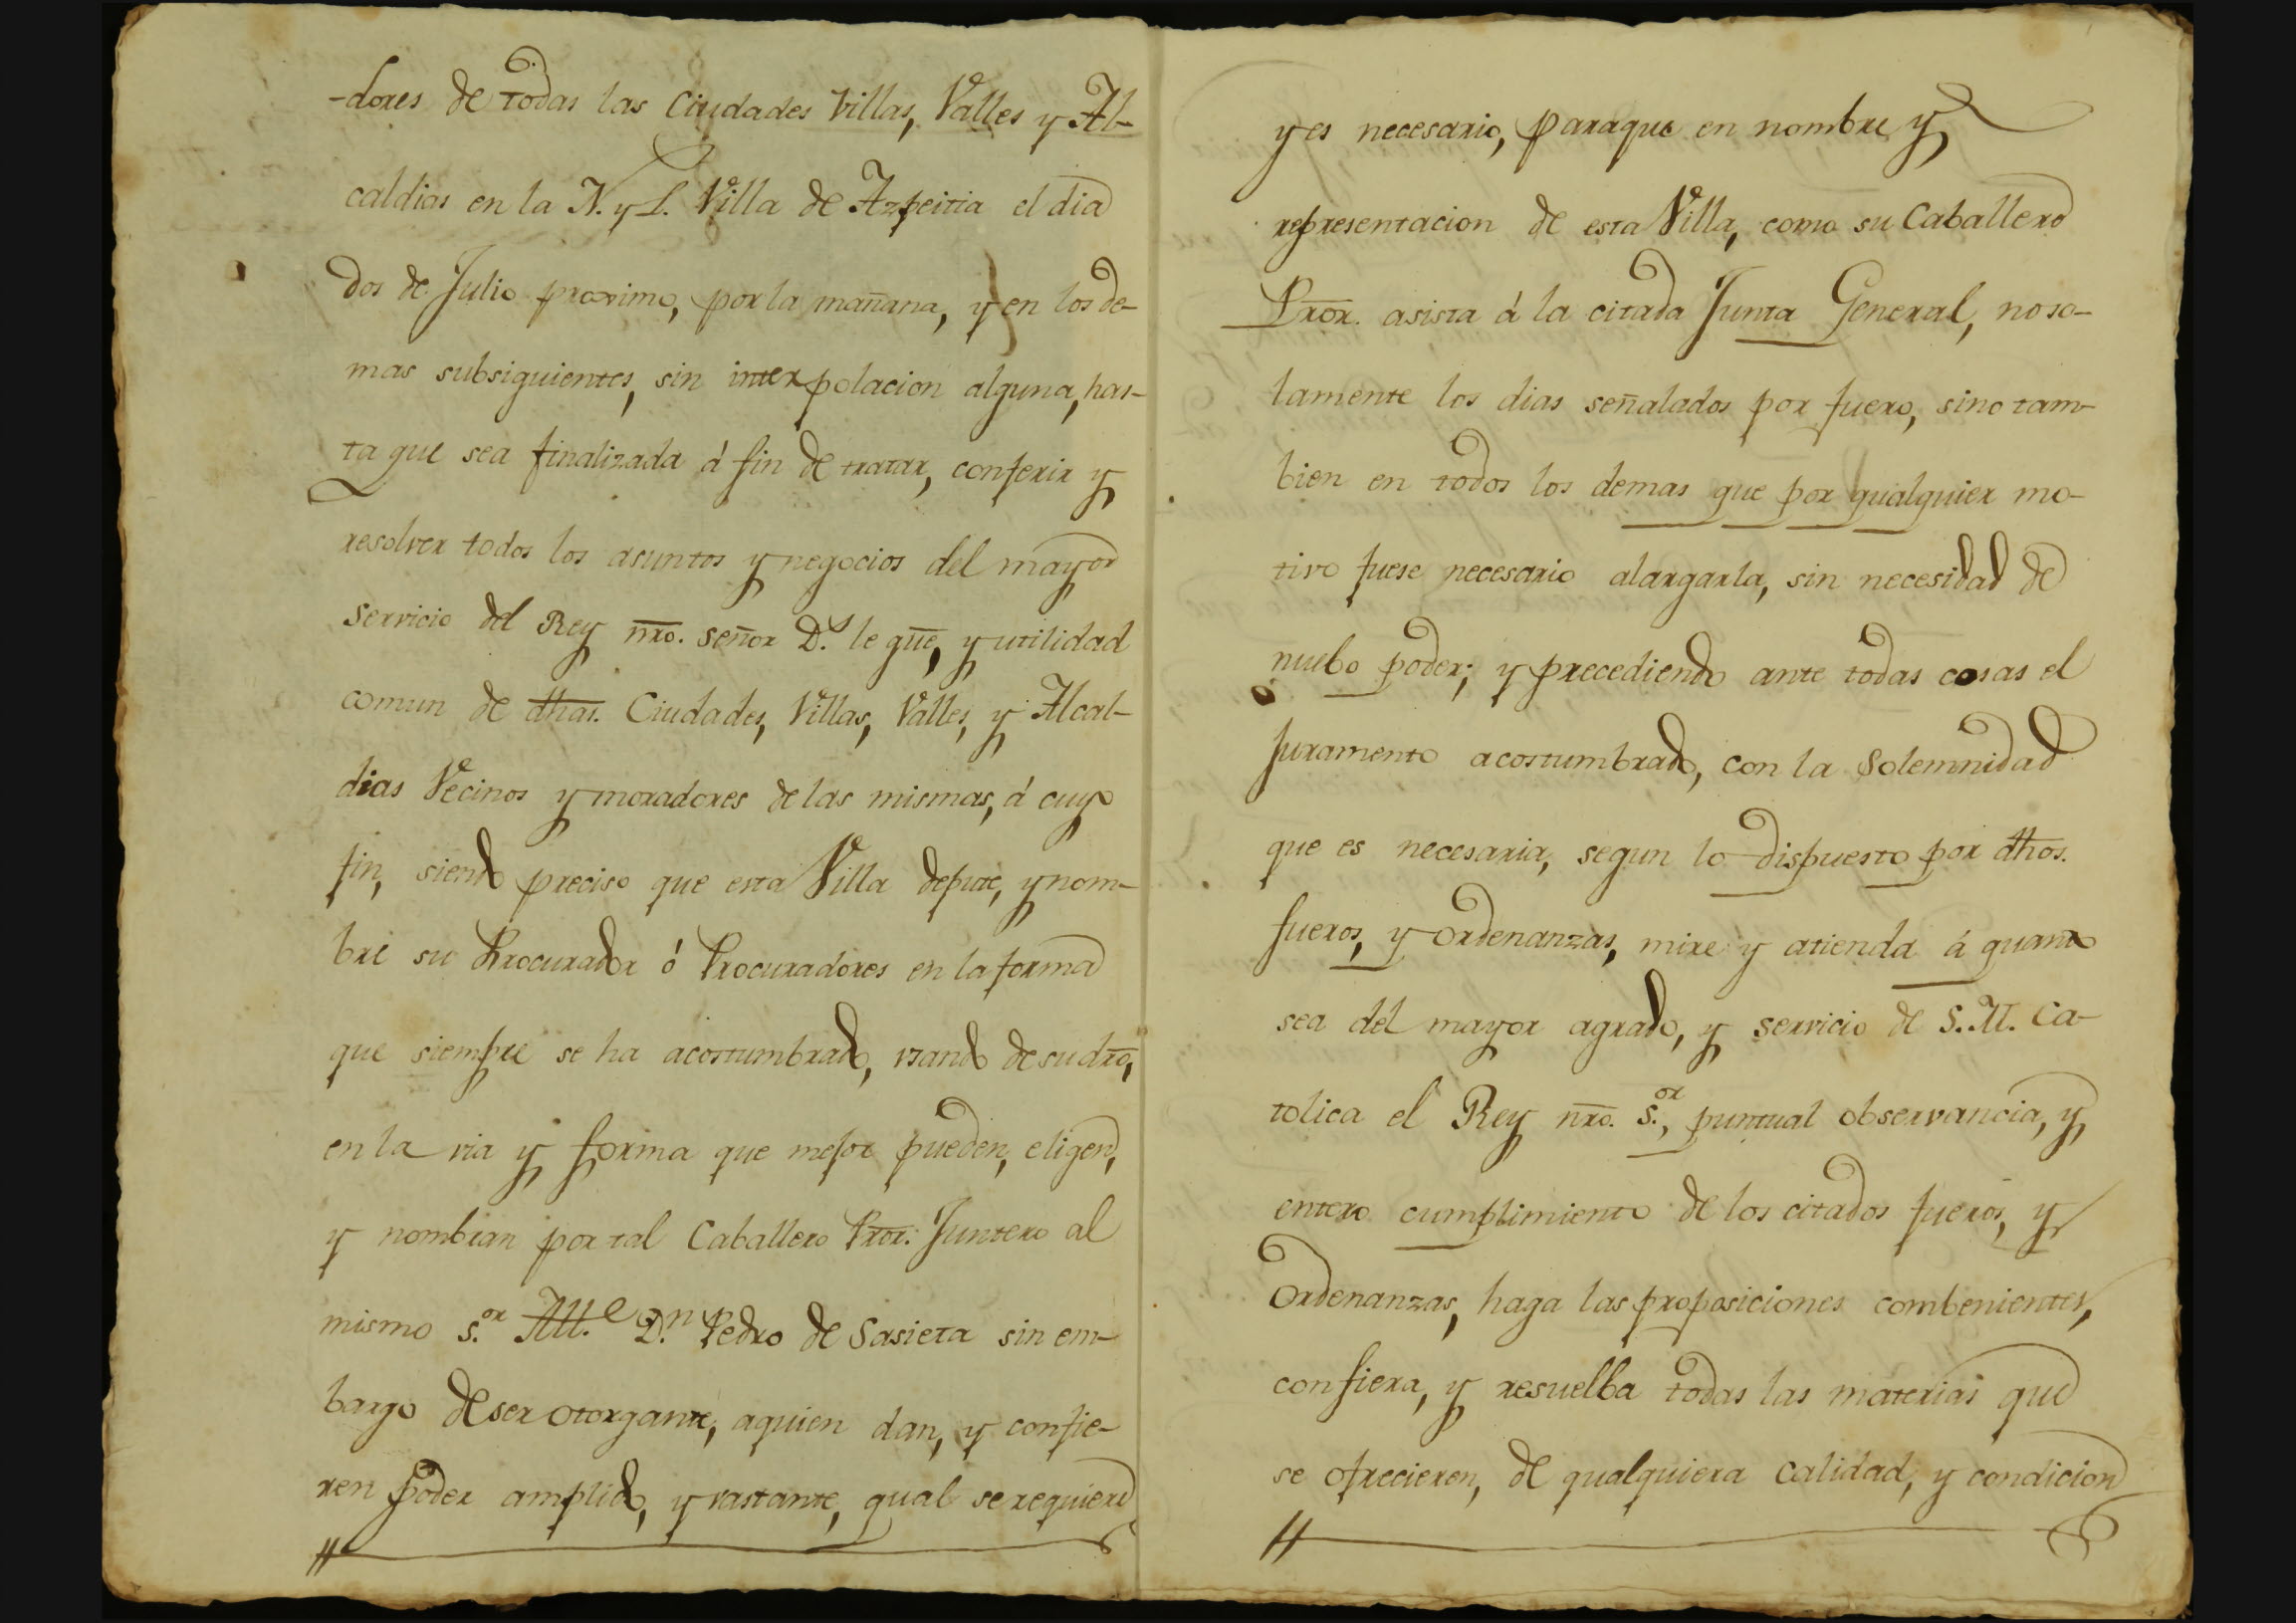 -dores de todas las Ciudades Villas, Valles y Al-
caldias en la N. y L. Villa de Azpeitia el dia
dos de Julio proximo, por la mañana, y en los de-
mas subsiguientes, sin interpolacion alguna, has-
ta que sea finalizada á fin de tratar, conferir y
resolver todos los asuntos y negocios del mayor
servicio del Rey nro. señor D.s le gue, y utilidad
comun de dhas. Ciudades, Villas, Valles, y Alcal-
dias Vecinos y moradores de las mismas, á cuyo
fin, siendo preciso que esta Villa depute, y nom-
bre su Procurador ó Procuradores en la forma
que siempre se ha acostumbrado, vsando de su dro,
en la via y forma que mejor pueden, eligen,
y nombran por tal Caballero Pror. Juntero al
mismo s.or All.e D.n Pedro de Sasieta sin em-
bargo de ser otorgante, aquien dan, y confie-
ren Poder amplio, y vastante, qual se requiere
y es necesario, paraque en nombre y
representacion de esta Villa, como su Caballero
Pror. asista á la citada Junta General, no so-
lamente los dias señalados por fuero, sino tam-
bien en todos los demas que por qualquier mo-
tivo fuese necesario alargarla, sin necesidad de
nuebo poder; y precediendo ante todas cosas el
Juramento acostumbrado, con la Solemnidad
que es necesaria, segun lo dispuesto por dhos.
fueros, y ordenanzas, mire y atienda á quanto
sea del mayor agrado, y servicio de S.M. Ca-
tolica el Rey nro. S.or, puntual observancia, y
entero cumplimiento de los citados fueros, y
Ordenanzas, haga las proposiciones combenientes,
confiera, y resuelba todas las materias que
se ofrecieren, de qualquiera calidad, y condicion